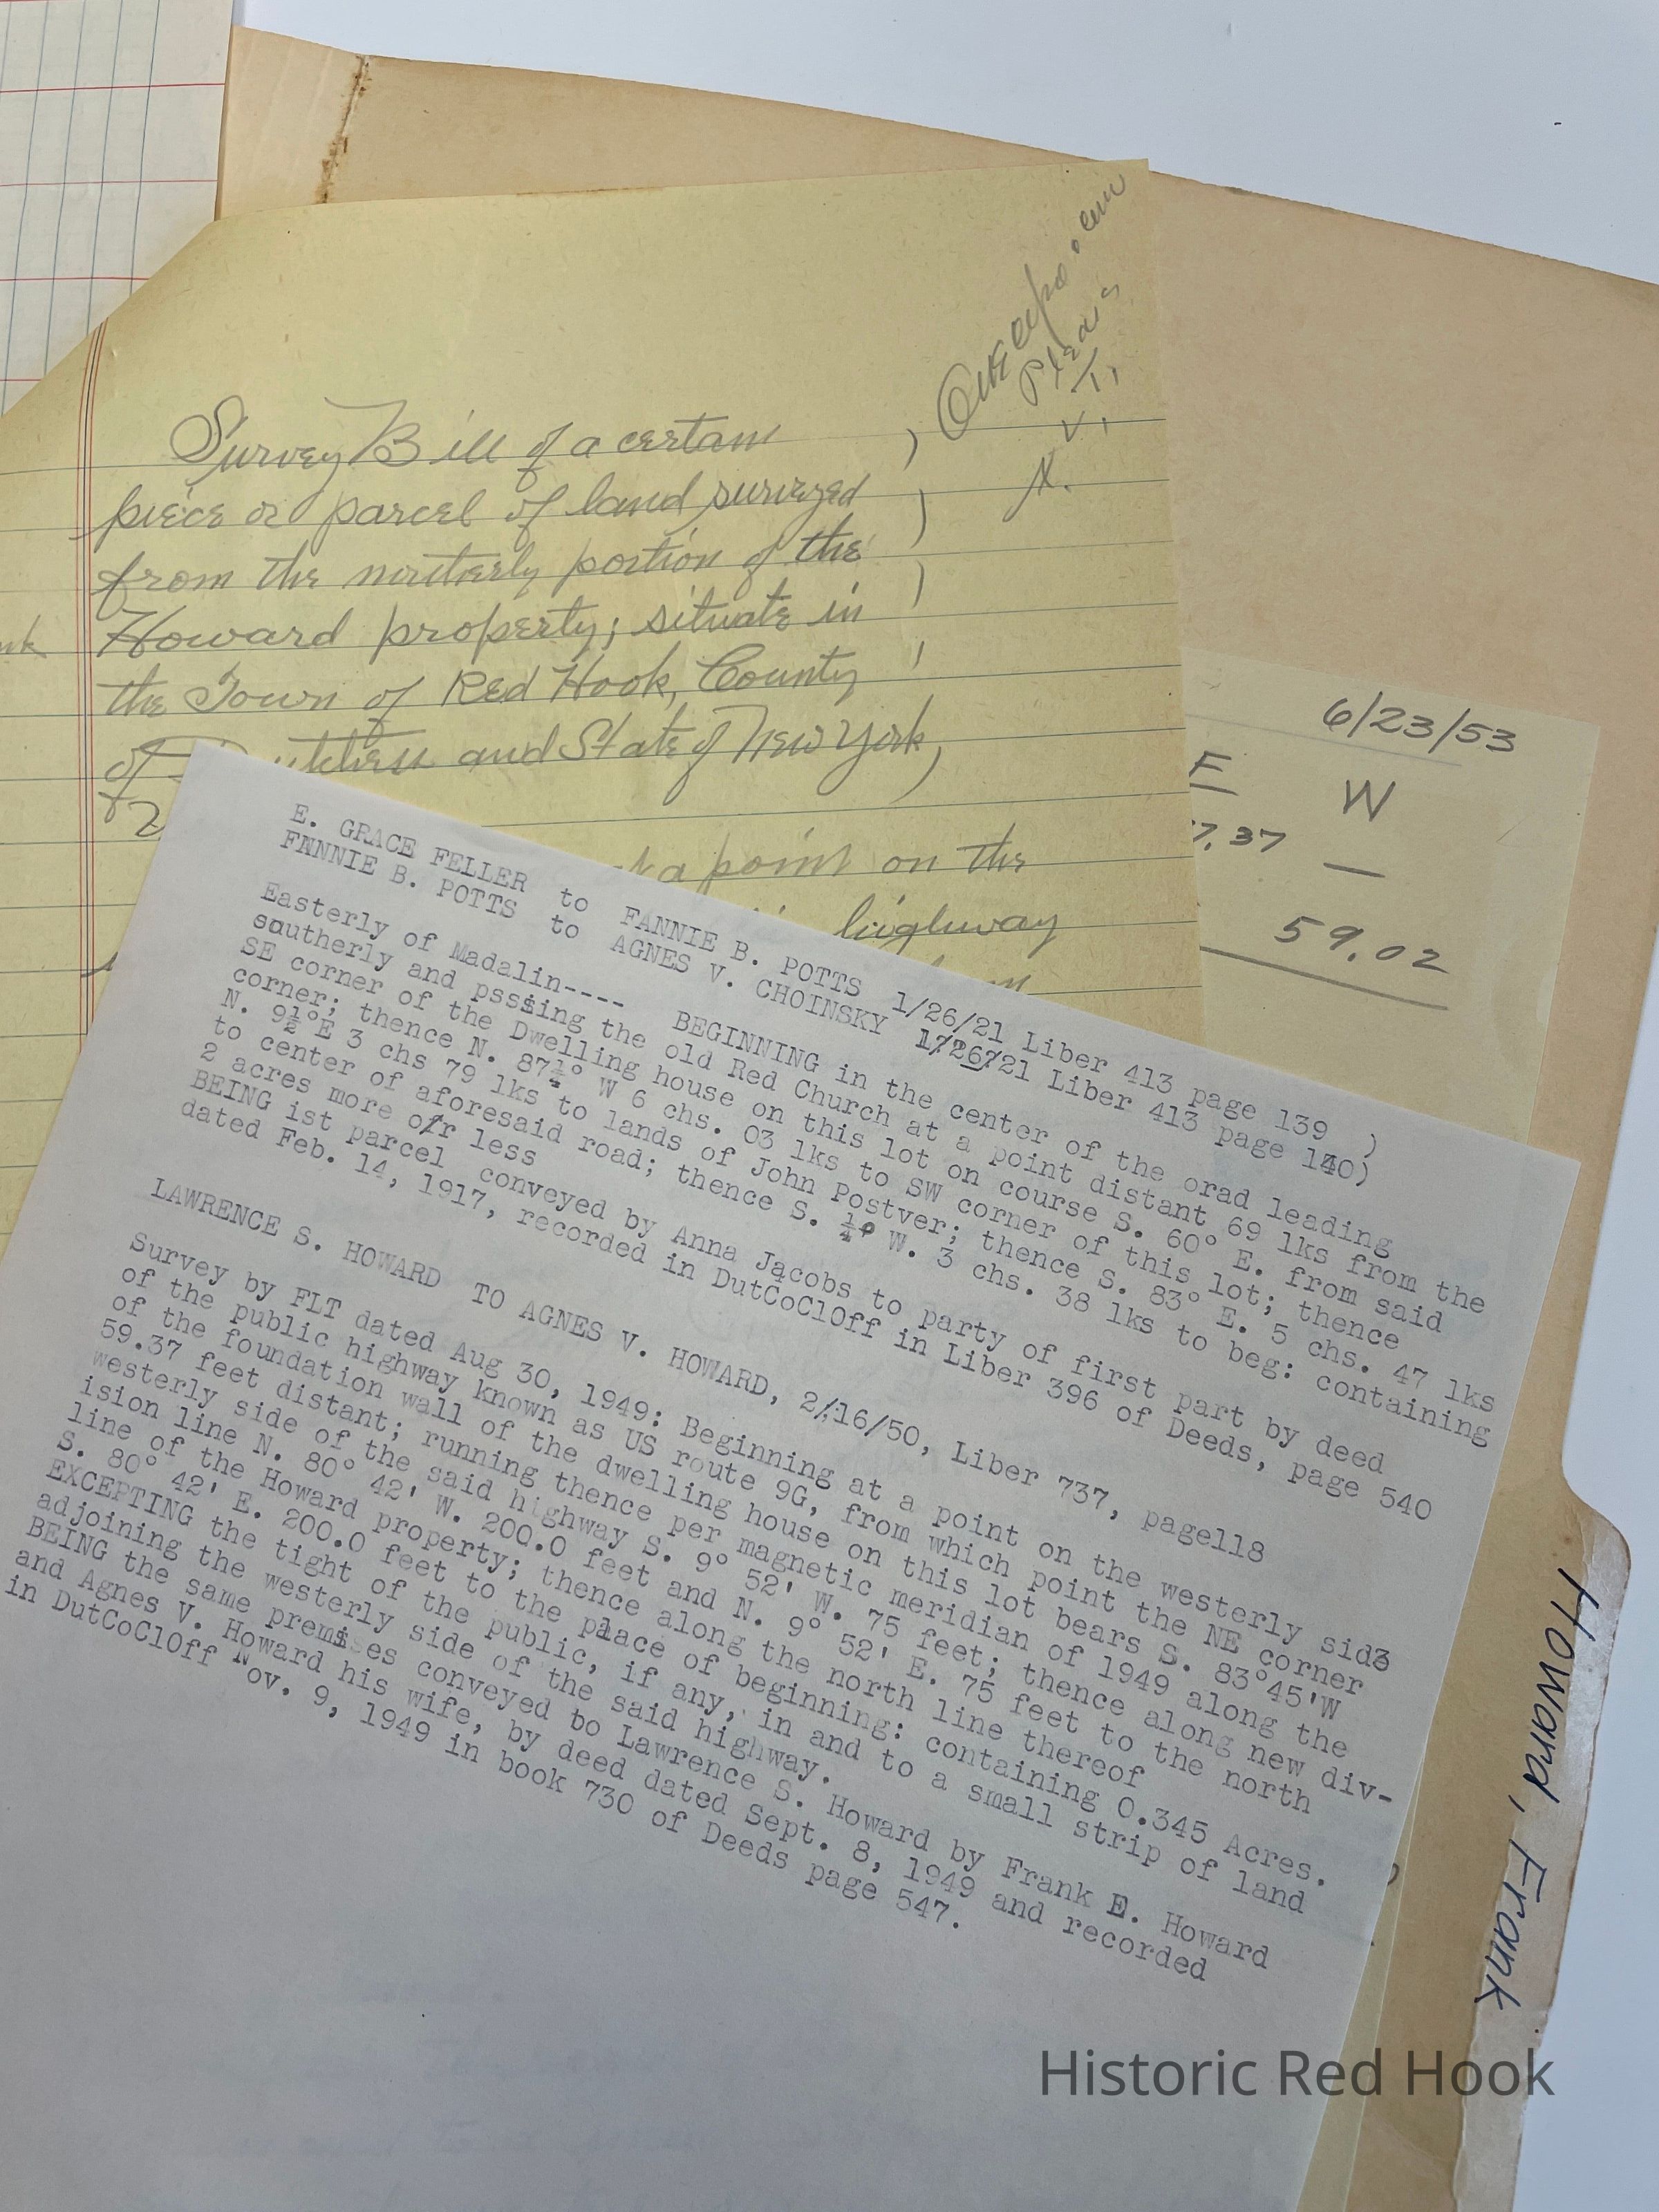 Survey Bill of a certain )
piece or parcel of land surveyed )
from the northerly portion of the )
Howard property; situate in )
the Town of Red Hook, County
of Dutchess and State of New York,
a point on the
highway
One
N. V. T.
6/23/53
E W
7.37 —
59.02
E. GRACE FELLER to FANNIE B. POTTS 1/26/21 Liber 413 page 139 )
FANNIE B. POTTS to AGNES V. CHOINSKY 1/26/21 Liber 413 page 140)
Easterly of Madalin---- BEGINNING in the center of the orad leading
southerly and pssing the old Red Church at a point distant 69 lks from the
SE corner of the Dwelling house on this lot on course S. 60° E. from said
corner; thence N. 87¼° W 6 chs. 03 lks to SW corner of this lot; thence
N. 9½°E 3 chs 79 lks to lands of John Postver; thence S. 83° E. 5 chs. 47 lks
to center of aforesaid road; thence S. ¼° W. 3 chs. 38 lks to beg: containing
2 acres more or less
BEING ist parcel conveyed by Anna Jacobs to party of first part by deed
dated Feb. 14, 1917, recorded in DutCoClOff in Liber 396 of Deeds, page 540
LAWRENCE S. HOWARD TO AGNES V. HOWARD, 2/16/50, Liber 737, page118
Survey by FLT dated Aug 30, 1949: Beginning at a point on the westerly sid3
of the public highway known as US route 9G, from which point the NE corner
of the foundation wall of the dwelling house on this lot bears S. 83°45'W
59.37 feet distant; running thence per magnetic meridian of 1949 along the
westerly side of the said highway S. 9° 52' W. 75 feet; thence along new div-
ision line N. 80° 42' W. 200.0 feet and N. 9° 52' E. 75 feet to the north
line of the Howard property; thence along the north line thereof
S. 80° 42' E. 200.0 feet to the place of beginning: containing 0.345 Acres.
EXCEPTING the tight of the public, if any, in and to a small strip of land
adjoining the westerly side of the said highway.
BEING the same premises conveyed to Lawrence S. Howard by Frank E. Howard
and Agnes V. Howard his wife, by deed dated Sept. 8, 1949 and recorded
in DutCoClOff Nov. 9, 1949 in book 730 of Deeds page 547.
Howard, Frank
Historic Red Hook